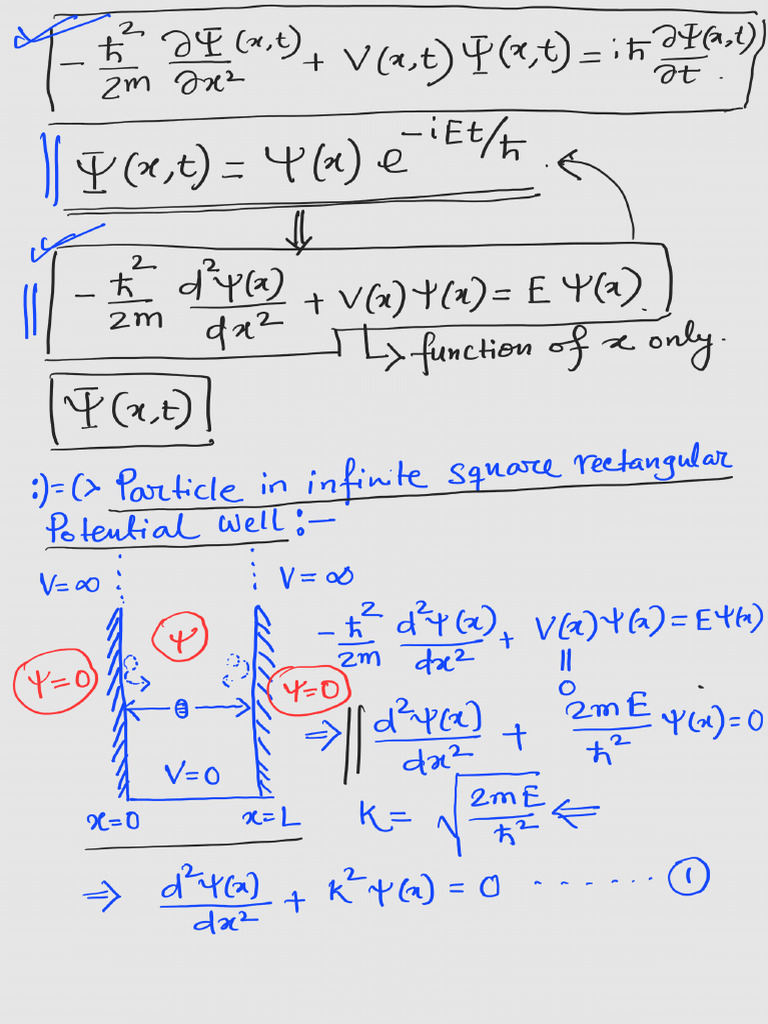 -ħ²/2m ∂Ψ(x,t)/∂x² + V(x,t) Ψ(x,t) = iħ ∂Ψ(x,t)/∂t.
Ψ(x,t) = ψ(x) e^{-iEt/ħ}.
⇓
-ħ²/2m d²ψ(x)/dx² + V(x)ψ(x) = E ψ(x).
↳ function of x only.
Ψ(x,t).
:)=(> Particle in infinite square rectangular
Potential well :-
V=∞
V=∞
ψ
ψ=0
ψ=0
V=0
x=0
x=L
-ħ²/2m d²ψ(x)/dx² + V(x)ψ(x) = Eψ(x)
||
0
⇒ || d²ψ(x)/dx² + 2mE/ħ² ψ(x) = 0
K = √(2mE/ħ²) ⇐
⇒ d²ψ(x)/dx² + k²ψ(x) = 0 ........ ①